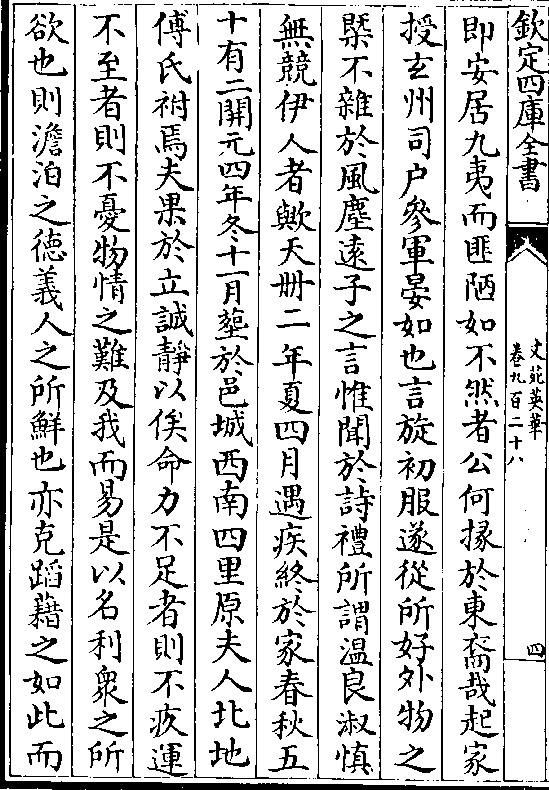 欽定四庫全書
文苑英華
卷九百二十八
四
即安居九夷而匪陋如不然者公何掾於東齋哉起家
授玄州司户參軍晏如也言旋初服遂從所好外物之
槩不雜於風塵遠子之言惟聞於詩禮所謂温良淑慎
無競伊人者歟天册二年夏四月遇疾終於家春秋五
十有二開元四年冬十一月塟於邑城西南四里原夫人北地
傅氏祔焉夫果於立誠靜以俟命力不足者則不疚運
不至者則不憂物情之難及我而易是以名利衆之所
欲也則澹泊之德義人之所鮮也亦克蹈藉之如此而